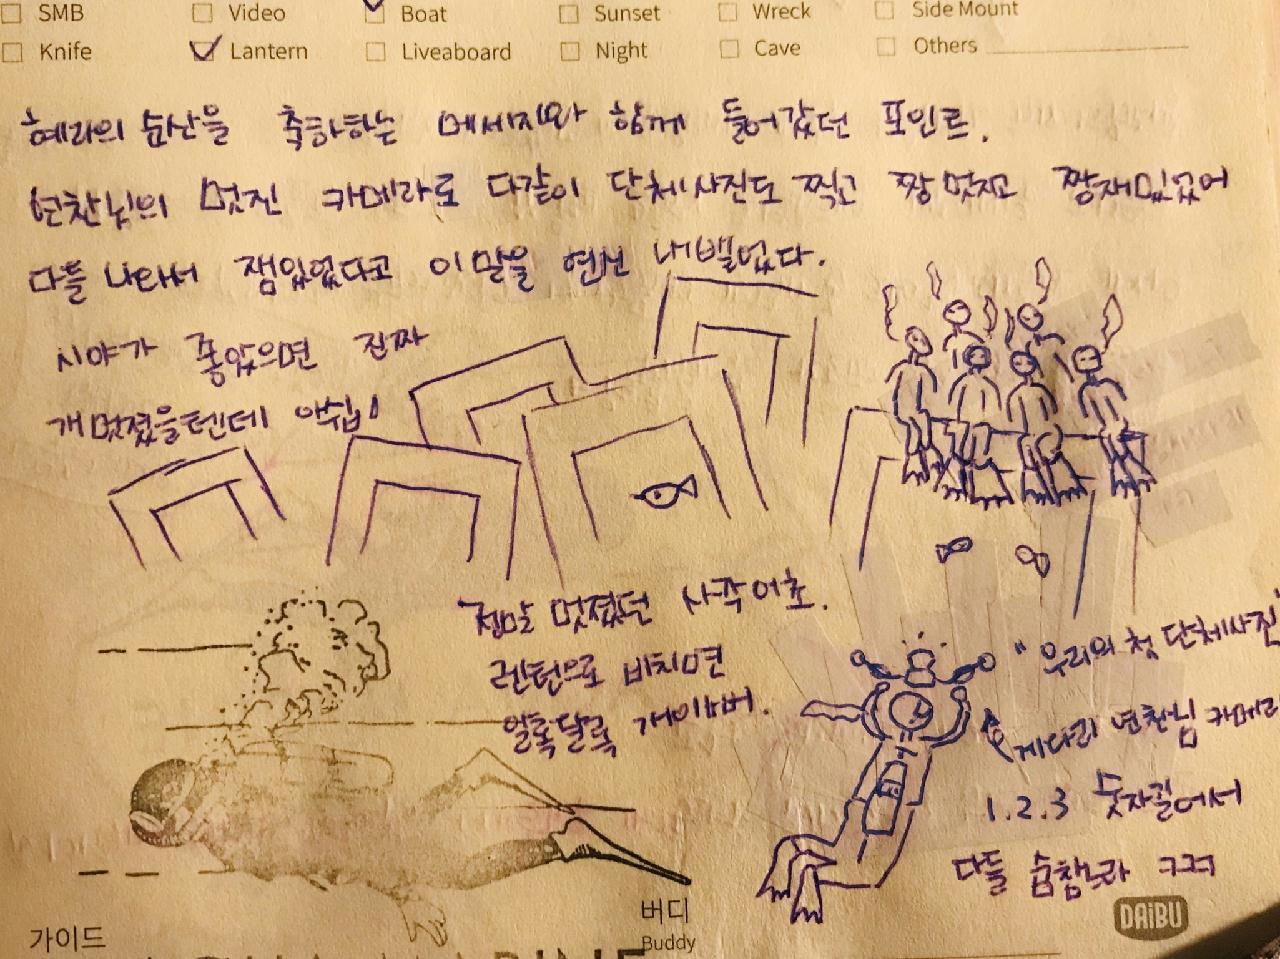 SMB Video Boat Sunset Wreck Side Mount
Knife Lantern Liveaboard Night Cave Others
혜라의 순산을 축하하는 메세지와 함께 들어갔던 포인트.
년찬님의 멋진 카메라로 다같이 단체사진도 찍고 짱멋지고 짱재밌었어
다들 나와서 잼있었다고 이말을 연신 내뱉었다.
시야가 좋았으면 진짜
개멋졌을텐데 아쉽
정말 멋졌던 사각어초.
렌턴으로 비치면
얼록달록 개이뻐.
"우리의 첫 단체사진"
게다리 년찬님 카메라
1.2.3 숫자판에서
다들 숨참느라
가이드
버디
Buddy
DAIBU